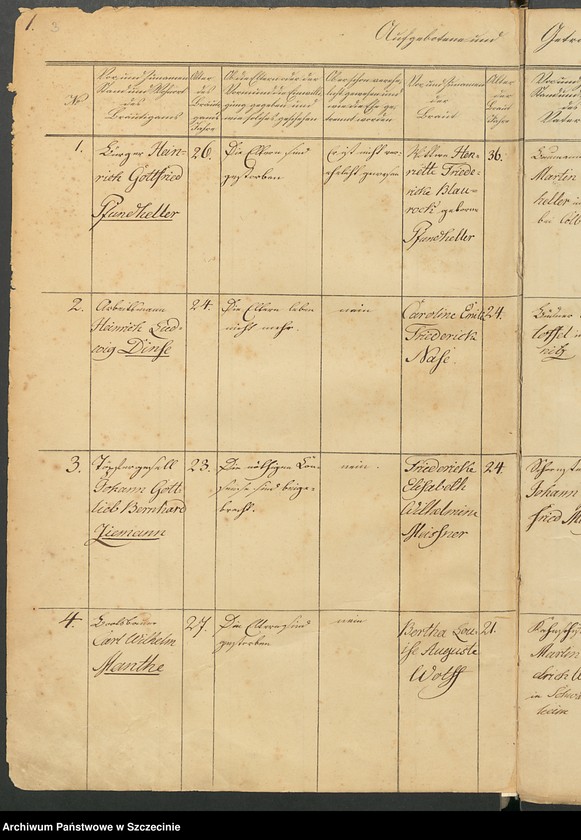 1. 3
Aufgebotene und
Getr
No
Vor und Zunamen
Stand und Wohnort
des
Bräutigams
Alter
des
Bräuti
gams
Jahre
Ob die Eltern oder der
Vormund die Einwilli
gung gegeben und
wie solches geschehen
Vor und Zunamen
der
Braut
Alter
der
Braut
Jahre
Vor und
des
Vater
1.
Bürger Hein-
rich Gottfried
Pfundheller
26.
Die Eltern sind
gestorben
Es ist nicht ver-
ehelicht gewesen
Wittwe Hen-
riette Friede-
ricke Blau-
rock geborne
Pfundheller
36.
Martin
heller in
bei Colb
2.
Arbeitsmann
Heinrich Lud-
wig Dinse
24.
Die Eltern leben
nicht mehr.
nein
Caroline Emilie
Friederick
Nase
24.
Büdner
loffel in
nitz
3.
Töpfergesell
Johann Gott-
lieb Bernhard
Ziemann
23.
Die nöthigen Con-
sense sind beige-
bracht.
nein.
Friedericke
Elisabeth
Wilhelmine
Meissner
24.
Johann
fried M
4.
Carl Wilhelm
Manthe
27.
Die Eltern sind
gestorben
nein
Bertha Lou-
ise Auguste
Wolff
21.
Martin
drich W
in Schw
Archiwum Państwowe w Szczecinie